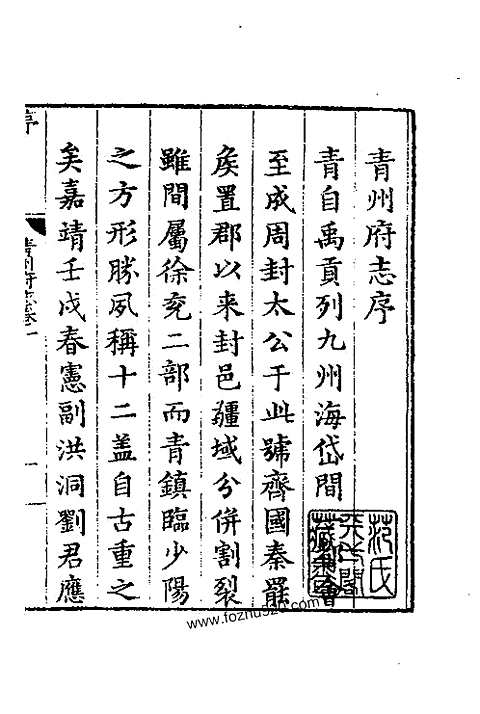 青州府志序
青自禹貢列九州海岱間會
至成周封太公于此號齊國秦罷
矦置郡以来封邑疆域分併割裂
雖間屬徐兖二部而青鎮臨少陽
之方形勝夙稱十二盖自古重之
矣嘉靖壬戍春憲副洪洞劉君應
序
青州府志卷一
一
范氏
天一閣
藏書
www.fozhu920.com